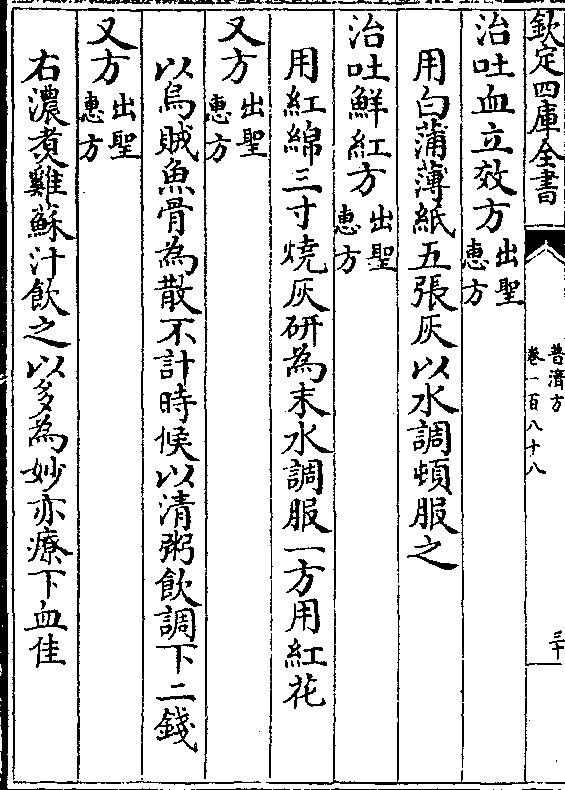 欽定四庫全書
普濟方
卷一百八十八
三十
治吐血立效方出聖惠方
用白蒲薄紙五張灰以水調頓服之
治吐鮮紅方出聖惠方
用紅綿三寸燒灰研為末水調服一方用紅花
又方出聖惠方
以烏賊魚骨為散不計時候以清粥飲調下二錢
又方出聖惠方
右濃煮雞蘇汁飲之以多為妙亦療下血佳